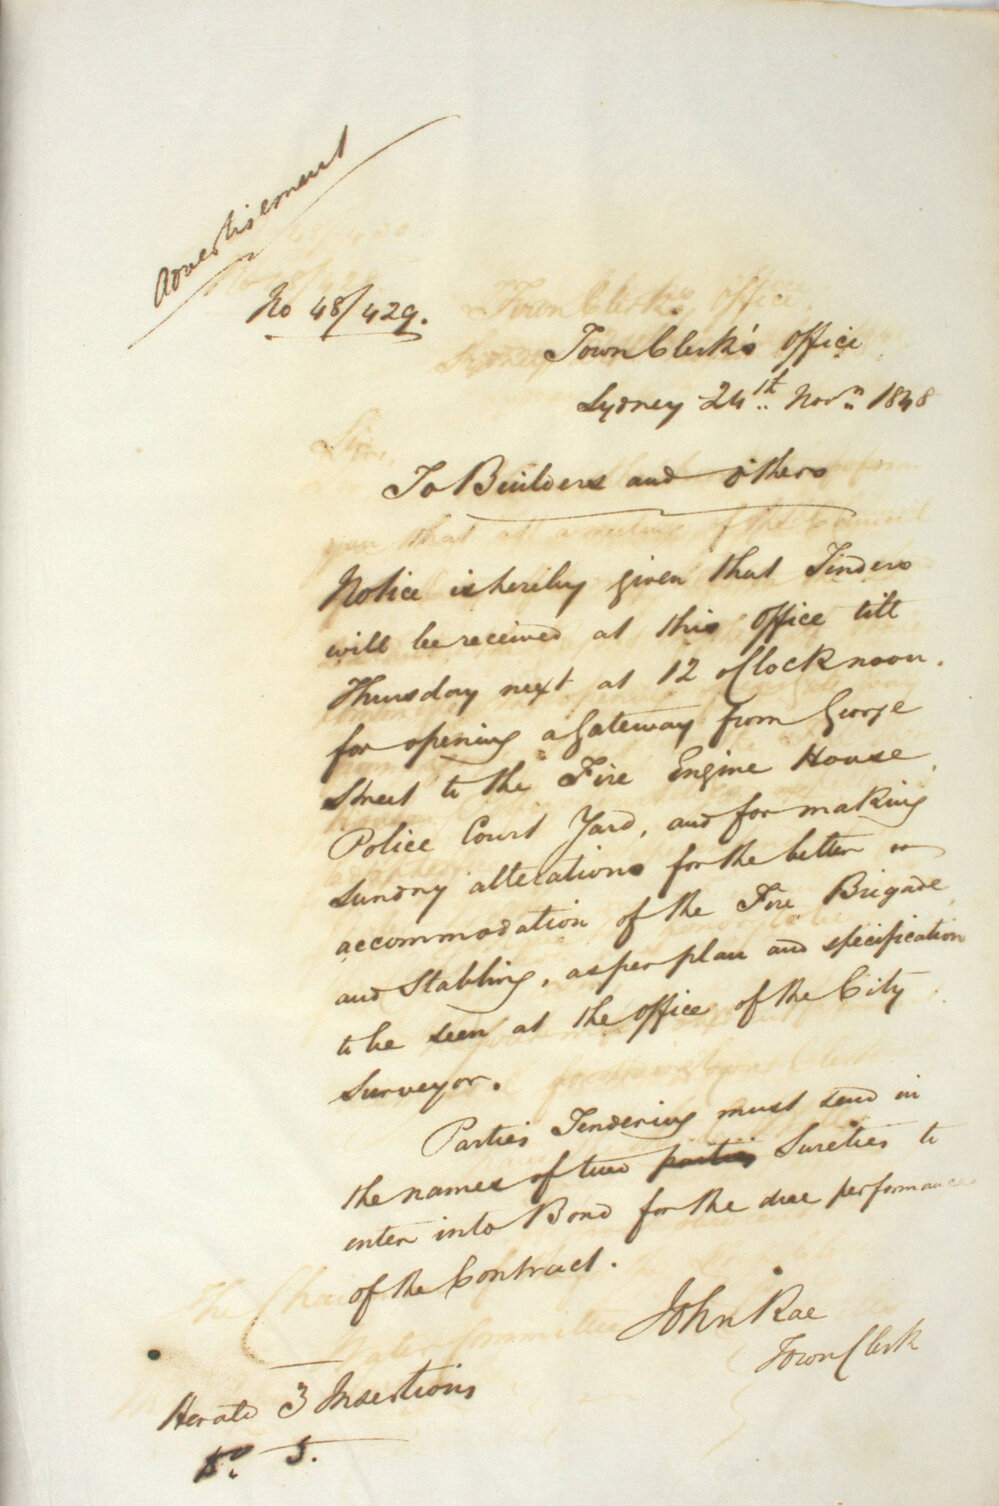 Advertisement
No 48/429.
Town Clerk's Office
Sydney 24th Novr 1848
To Builders and others
Notice is hereby given that Tenders
will be received at this Office till
Thursday next at 12 o'Clock noon.
for opening a Gateway from George
Street to the Fire Engine House,
Police Court Yard, and for making
sundry alterations for the better
accommodation of the Fire Brigade,
and Stabling, as per plan and specification
to be seen at the office of the City
Surveyor.
Parties Tendering must send in
the names of two parties Sureties to
enter into Bond for the due performance
of the Contract.
John Rae
Town Clerk
Herald 3 Insertions
Do 3.